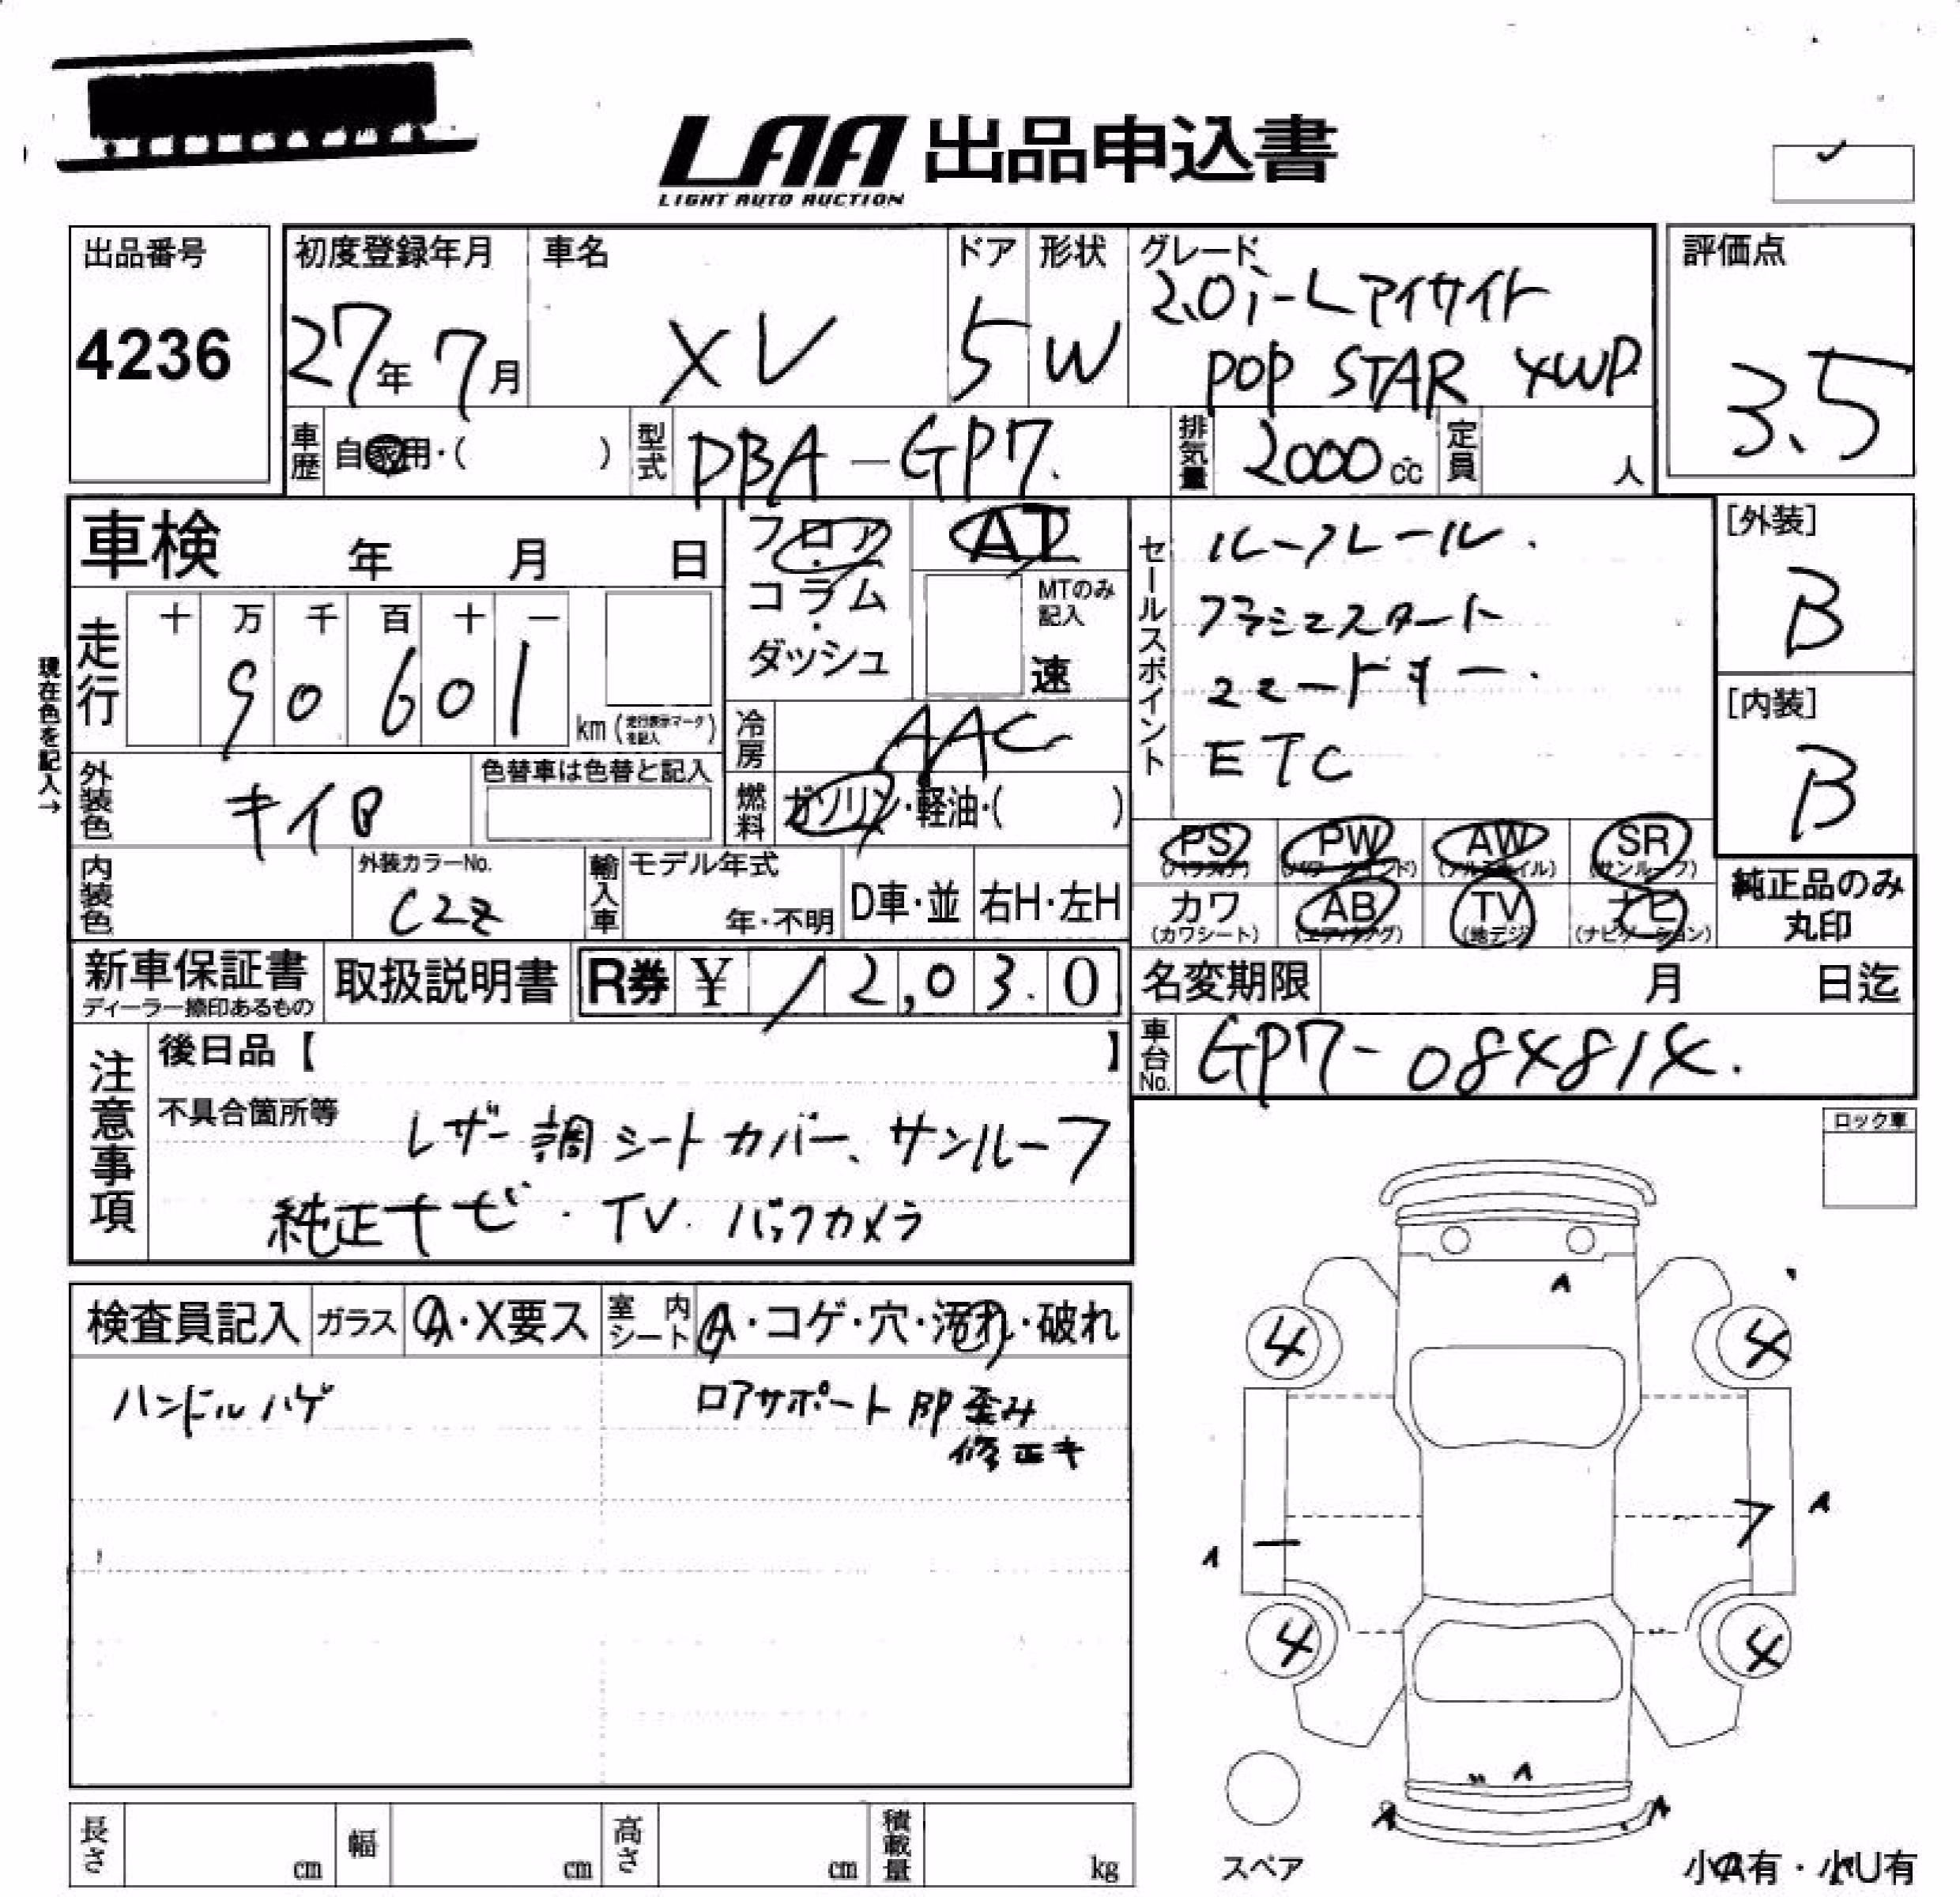 LAA 出品申込書
LIGHT AUTO AUCTION
出品番号
4236
初度登録年月
27年 7月
車名
XV
ドア
5
形状
W
グレード
2.0i-L アイサイト
POP STAR 4WD
評価点
3.5
車歴 自家用・( )
型式 DBA-GP7.
排気量 2000 cc
定員 人
車検 年 月 日
フロア・
コラム・
ダッシュ
AT
MTのみ
記入
速
セールスポイント
ルーフレール.
プッシュスタート
スマートキー.
ETC
[外装]
B
[内装]
B
現在色を記入→
走行
十 万 千 百 十 一
9 0 6 0 1
km (走行表示マークを記入)
冷房 AAC
燃料 ガソリン・軽油・( )
外装色 キイロ
色替車は色替と記入
内装色
外装カラーNo.
C2Z
輸入車
モデル年式
年・不明
D車・並
右H・左H
PS
(パワステ)
PW
(パワーウインド)
AW
(アルミホイル)
SR
(サンルーフ)
カワ
(カワシート)
AB
(エアバッグ)
TV
(地デジ)
ナビ
(ナビゲーション)
純正品のみ
丸印
新車保証書
ディーラー捺印あるもの
取扱説明書
R券 ¥ 12,030
名変期限 月 日迄
車台No. GP7-084814.
注意事項
後日品【 】
不具合箇所等
レザー調シートカバー、サンルーフ
純正ナビ・TV. バックカメラ
ロック車
検査員記入
ガラス A・X要ス
室内シート A・コゲ・穴・汚れ・破れ
ハンドルハゲ
ロアサポート部歪み
修正キ
A
4
4
A
A
4
4
A
A
A
スペア
小A有・小U有
長さ cm
幅 cm
高さ cm
積載量 kg